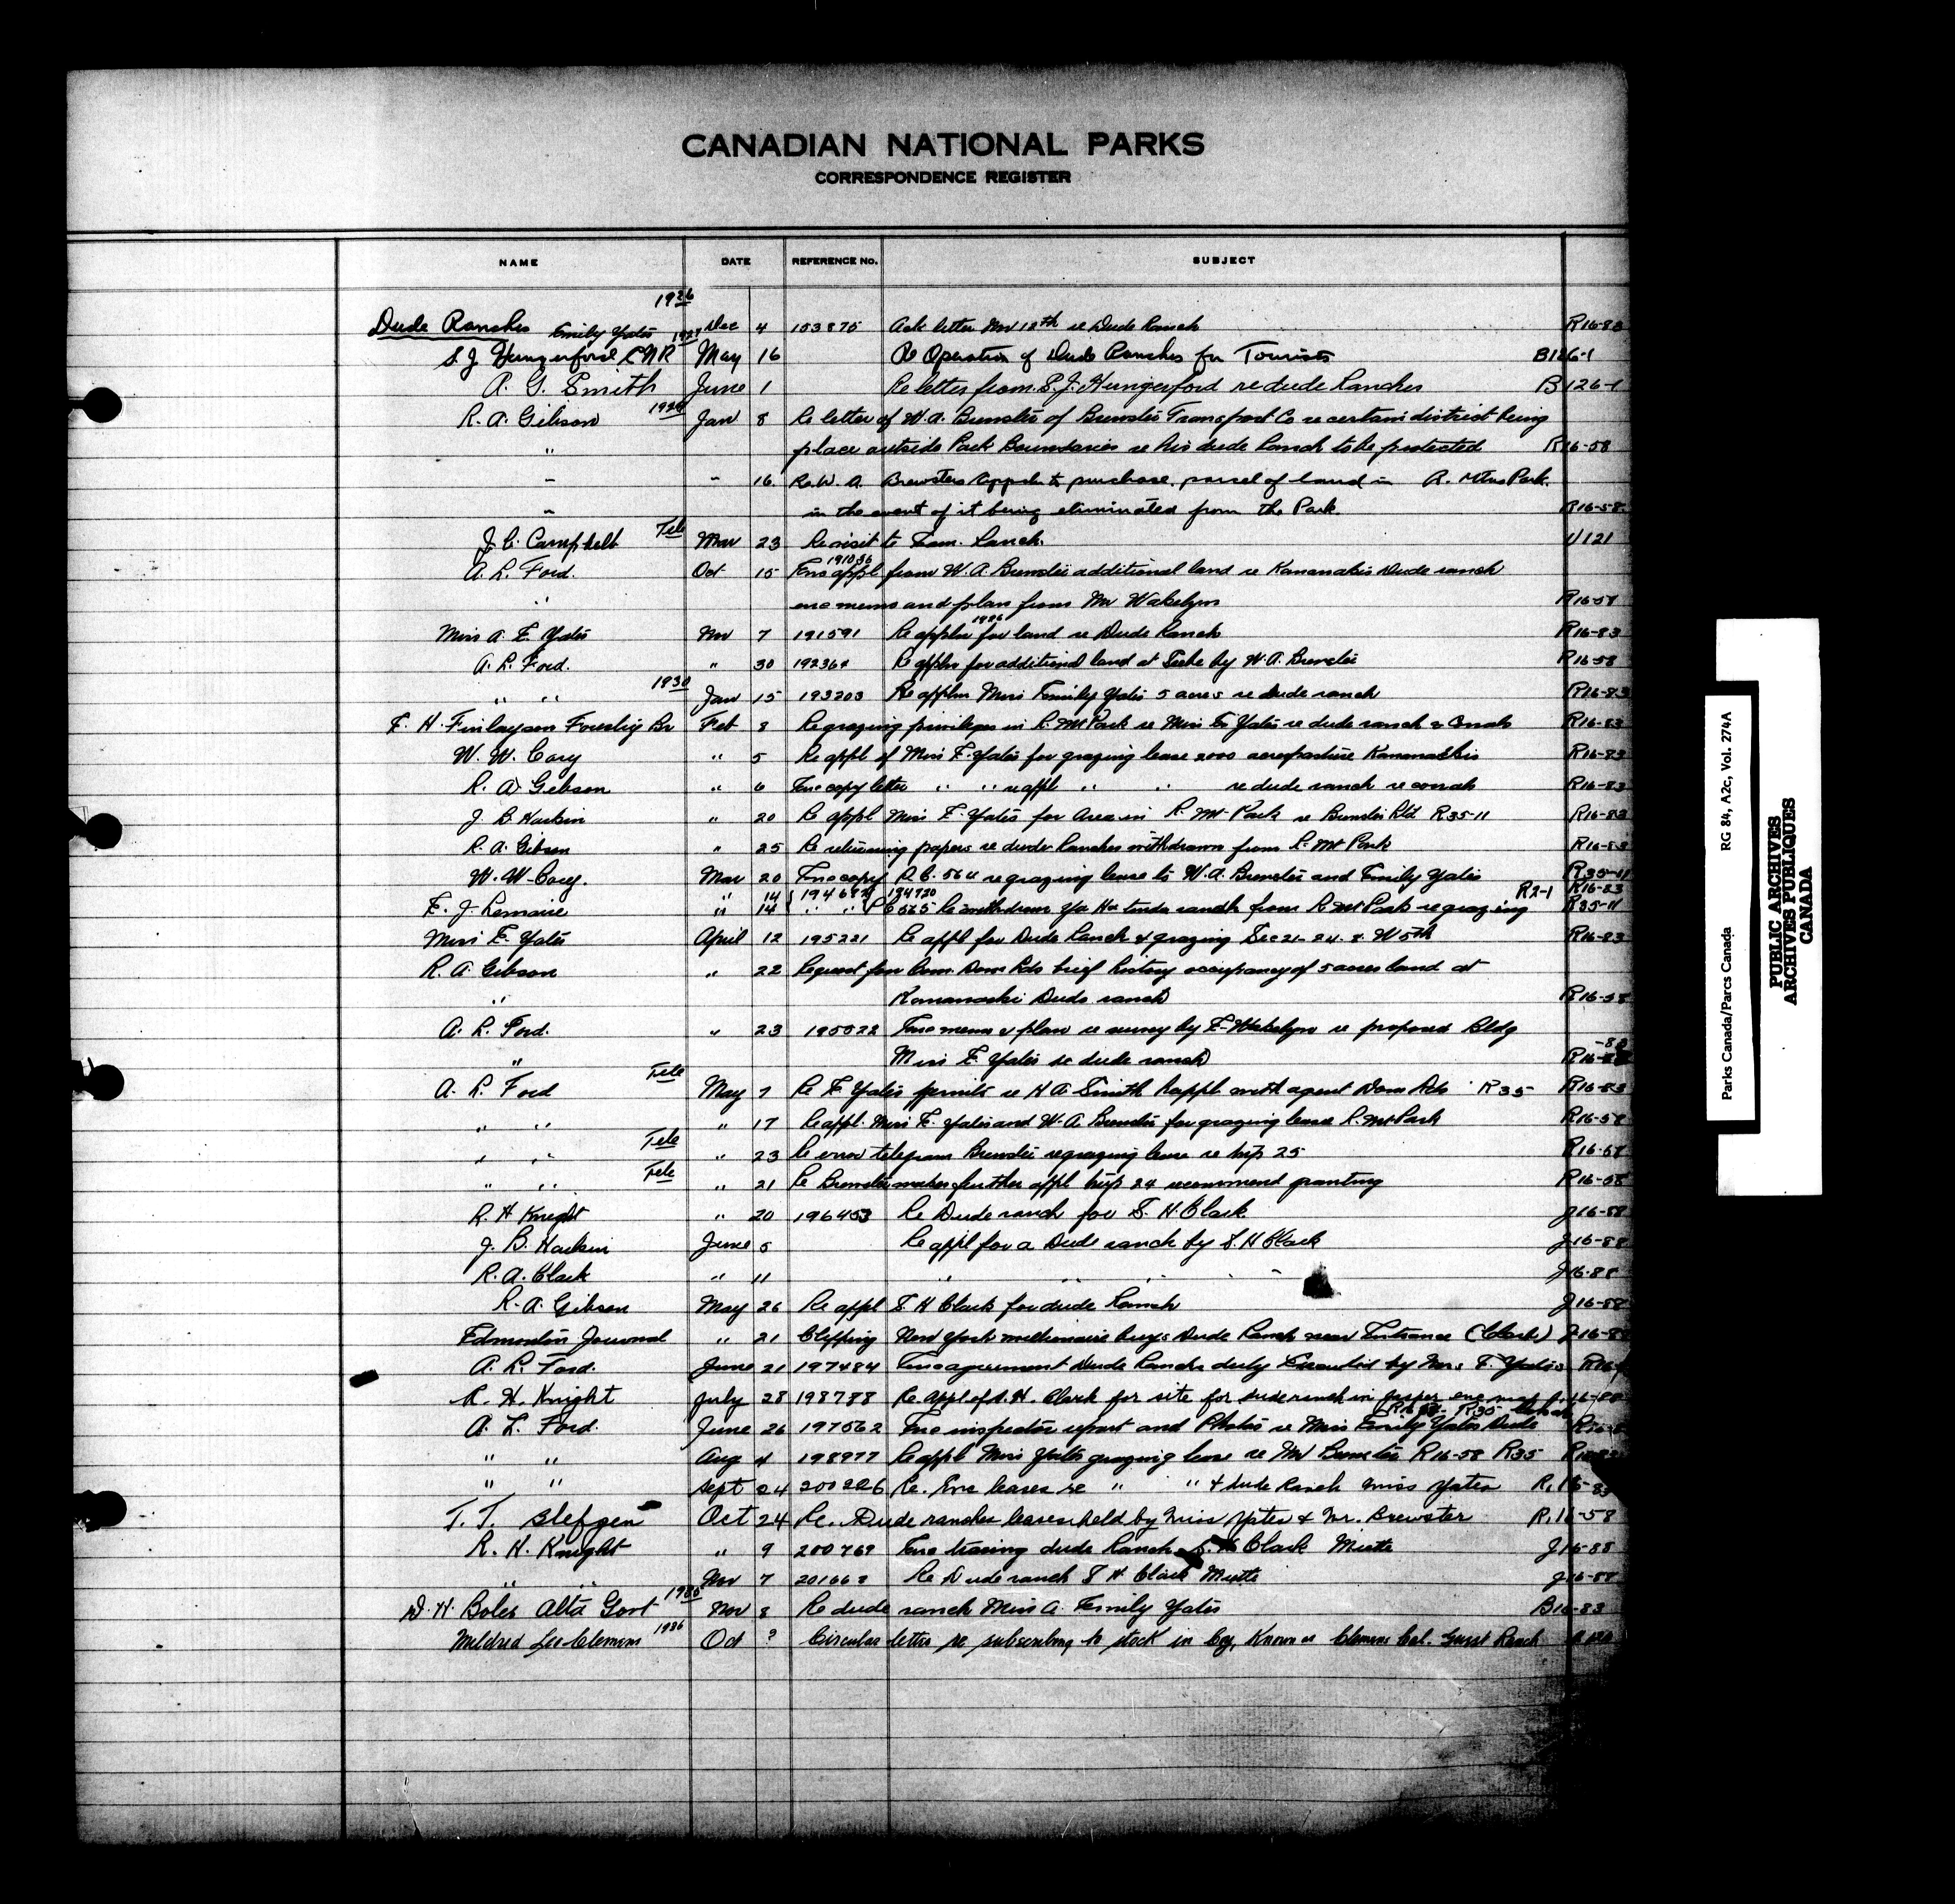 CANADIAN NATIONAL PARKS
CORRESPONDENCE REGISTER
NAME DATE REFERENCE No. SUBJECT
1926
Dude Ranches Emily Yates Dec 4 153875 Ack letter Nov 12th re Dude Ranch R16-83
S. J. Hungerford C.N.R May 16 Re Operation of Dude Ranches for Tourists B126-1
A. G. Smith June 1 Re letter from S. J. Hungerford re dude Ranches B126-1
R. A. Gibson Jan 8 Re letter of W. A. Brewster of Brewster Transport Co re certain district being
" place outside Park Boundaries re his dude Ranch to be protected R16-58
" " 16 Re W. A. Brewsters appln to purchase parcel of land in R. Mtns Park
" in the event of it being eliminated from the Park R16-58
J. C. Campbell Tele Mar 23 Re visit to Ranch. U121
A. L. Ford. Oct 15 191036 Enc appl from W. A. Brewster additional land re Kananaskis Dude ranch
" enc memo and plan from Mr Wakelyn R16-58
Miss A. E. Yates Nov 7 191591 Re appln for land re Dude Ranch R16-83
A. L. Ford. " 30 192364 Re appln for additional land at Seebe by W. A. Brewster R16-58
" " 1930 Jan 15 193203 Re appln Miss Emily Yates 5 acres re dude ranch R16-83
E. H. Finlayson Forestry Br Feb 8 Re grazing privileges in R. Mt Park re Miss E. Yates re dude ranch & corrals R16-83
W. W. Cory " 5 Re appl of Miss E. Yates for grazing lease 2000 acres pasture Kananaskis R16-83
R. A. Gibson " 6 Enc copy letter " " re appl " " re dude ranch re corrals R16-83
J. B. Harkin " 20 Re appl Miss E. Yates for area in R. Mt Park re Brewster R35-11 R16-83
R. A. Gibson " 25 Re returning papers re dude Ranches withdrawn from R. Mt Park R16-83
W. W. Cory. Mar 20 Enc copy P.C. 564 re grazing lease to W. A. Brewster and Emily Yates R35-11
" 14 194687 194720 R2-1 R16-83
E. J. Lemaire " 14 " " PC 565 Re withdraw ranch from R Mt Park re grazing R35-11
Miss E. Yates April 12 195221 Re appl for Dude Ranch & grazing Sec 21-24-8-W5th R16-83
R. A. Gibson " 22 Request for Com. Dom Pks brief history occupancy of 5 acres land at
" Kananaskis Dude ranch R16-58
A. L. Ford. " 23 195522 Enc memo & plan re survey by E. Wakelyn re proposed Bldg
" Miss E. Yates re dude ranch R16-83
A. L. Ford Tele May 7 Re E. Yates permits re H A Smith appl with agent Dom R35 R16-83
" " " 17 Re appl. Miss E. Yates and W. A. Brewster for grazing lease R. Mt Park R16-58
" " Tele " 23 Re error telegram Brewster re grazing lease re twp 25 R16-58
" " Tele " 21 Re Brewster makes further appl twp 24 recommend granting R16-58
R. H. Knight " 20 196453 Re Dude ranch for S. H. Clark J16-88
J. B. Harkin June 5 Re appl for a Dude ranch by S. H Clark J16-88
R. A. Clark " 11 " " " " J16-88
R. A. Gibson May 26 Re appl S. H Clark for dude Ranch J16-88
Edmonton Journal " 21 Clipping New York millionaire buys Dude Ranch near Entrance (Clark) J16-88
A. L. Ford. June 21 197484 Enc agreement Dude Ranch duly Executed by Mrs E. Yates R16-
R. H. Knight July 28 198788 Re Appl of S. H. Clark for site for dude ranch in Jasper enc map J16-88
A. L. Ford. June 26 197562 Enc inspector report and Photos re Miss Emily Yates Dude
" " Aug 4 198977 Re appl Miss Yates grazing lease re Mr Brewster R16-58 R35 R16-83
" " Sept 24 200226 Re. Enc leases re " " & dude Ranch Miss Yates R.16-83
T. T. Blefgen Oct 24 Re. Dude ranches leases held by Miss Yates & Mr. Brewster R.16-58
R. H. Knight " 9 200769 Enc tracing dude Ranch S. H Clark Miette J16-88
" " Nov 7 201668 Re Dude ranch S H Clark Miette J16-88
D. H. Boles Alta Govt Nov 8 Re dude ranch Miss A. Emily Yates B16-83
Mildred Lee Clemens 1936 Oct ? Circular letter re subscribing to stock in Coy. Known as Clemens Cal. Guest Ranch
Parks Canada/Parcs Canada RG 84, A2c, Vol. 274A
PUBLIC ARCHIVES
ARCHIVES PUBLIQUES
CANADA